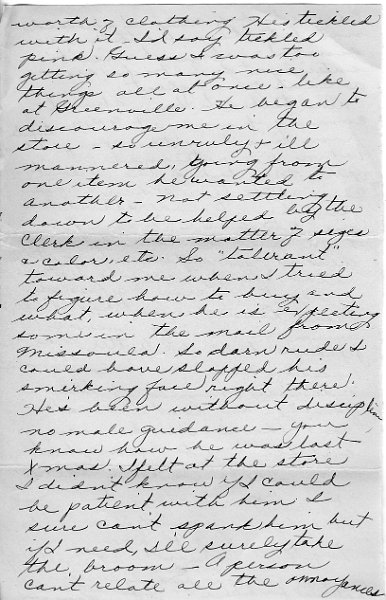 worth of clothing. His tickled
with it - I'd say tickled
pink. Guess I was too
getting so many nice
things all at once - like
at Greenville. He began to
discourage me in the
store - so unruly & ill
mannered, going from
one item he wanted to
another - not settling
down to be helped by the
clerk in the matter of sizes
& color, etc. So "tolirant"
toward me when I tried
to figure how to buy and
what, when he is expecting
some in the mail from
Missoula. So darn rude I
could have slapped his
smirking face right there.
He's been without disciplin
no male guidance - you
know how he was last
Xmas. I felt at the store
I didn't know if I could
be patient with him. I
sure can't spank him but
if I need, I'll surely take
the broom - A person
can't relate all the annoyances